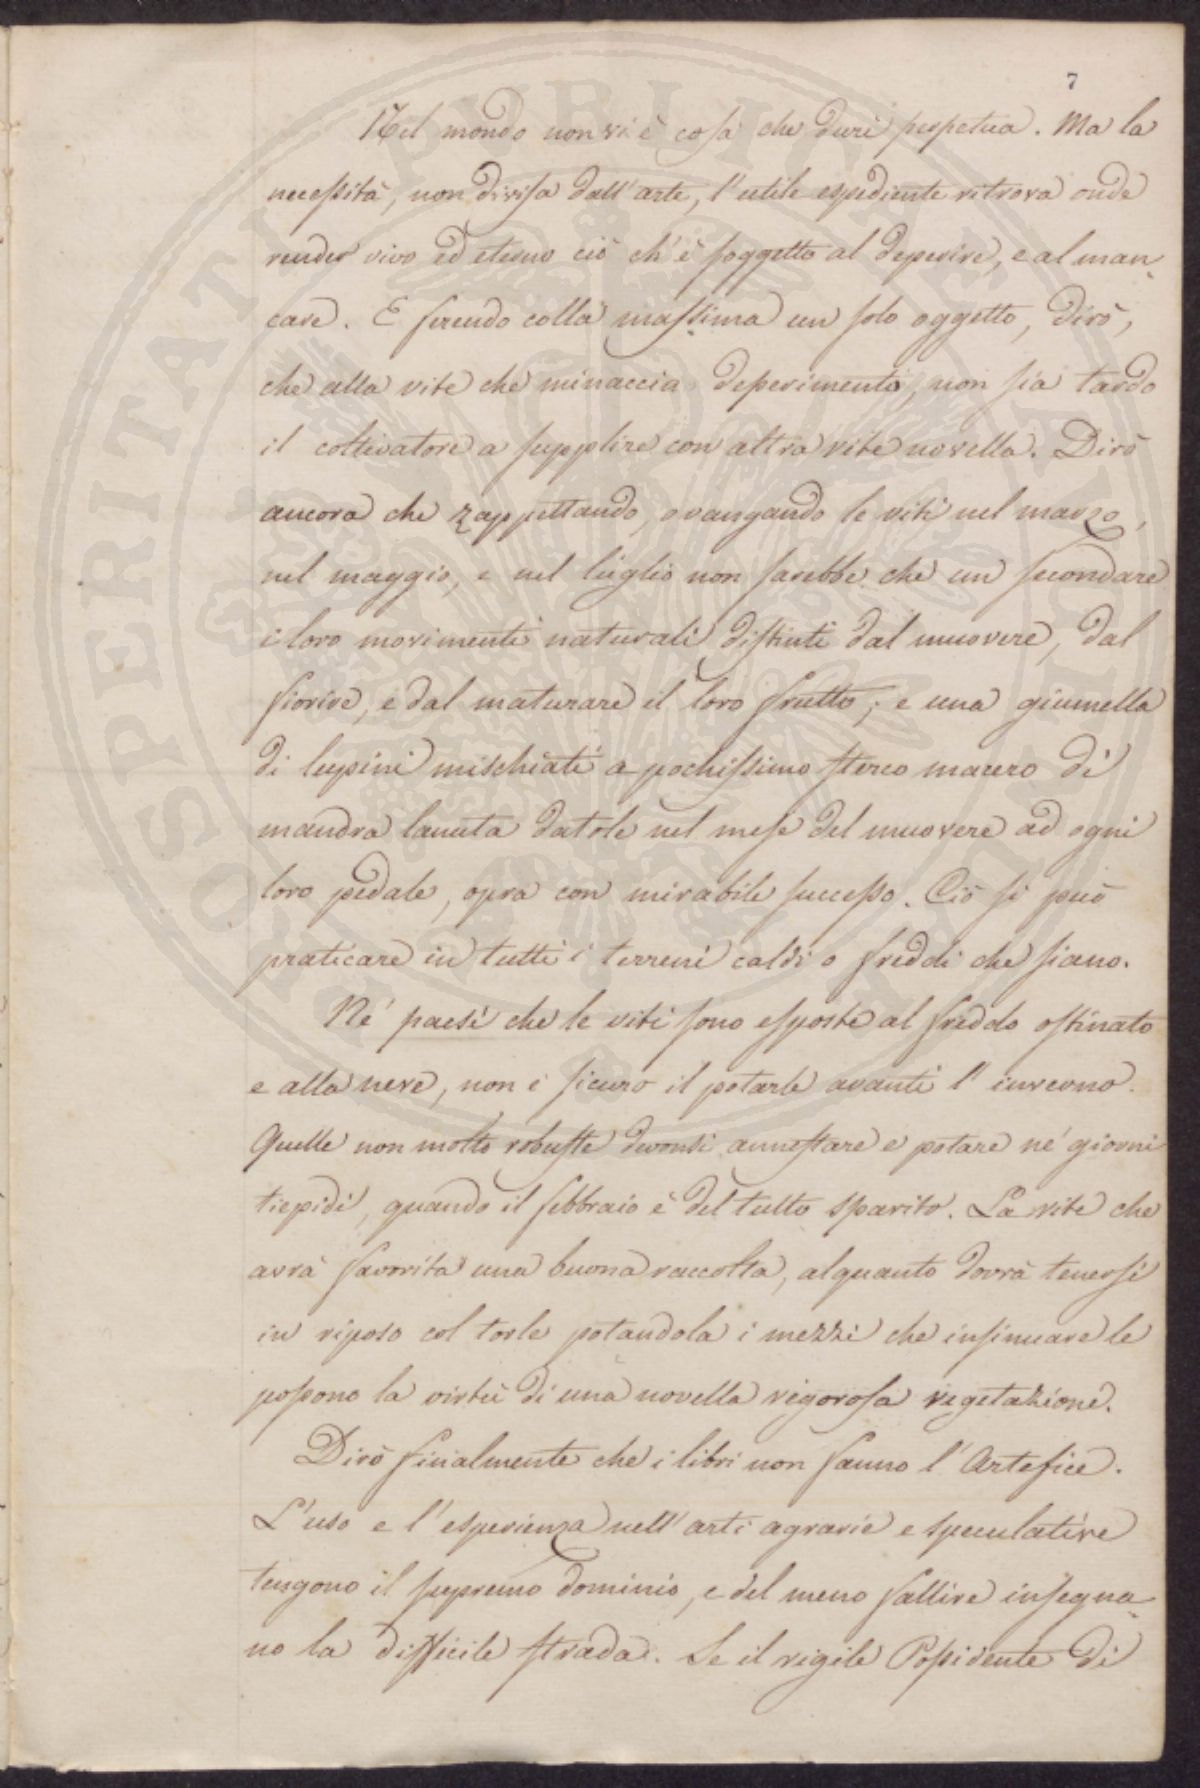 7
Nel mondo non vi è cosa che duri perpetua. Ma la
necessità, non divisa dall'arte, l'utile espediente ritrova onde
render vivo ed eterno ciò ch'è soggetto al deperire, e al man-
care. E serendo colla massima un solo oggetto, dirò,
che alla vite che minaccia deperimento, non sia tardo
il coltivatore a supplire con altra vite novella. Dirò
ancora che zappettando, o vangando le viti nel marzo,
nel maggio, e nel luglio non sarebbe che un secondare
i loro movimenti naturali distinti dal muovere, dal
fiorire, e dal maturare il loro frutto; e una giumella
di lupini mischiati a pochissimo sterco macero di
mandra lanuta datole nel mese del muovere ad ogni
loro pedale, opra con mirabile successo. Ciò si può
praticare in tutti i terreni caldi o freddi che siano.
Ne' paesi che le viti sono esposte al freddo ostinato
e alla neve, non è sicuro il potarle avanti l'inverno.
Quelle non molto robuste devonsi annestare e potare ne' giorni
tiepidi, quando il febbraio è del tutto sparito. La vite che
avrà favorita una buona raccolta, alquanto dovrà tenersi
in riposo col torle potandola i mezzi che insinuare le
possono la virtù di una novella vigorosa vegetazione.
Dirò finalmente che i libri non fanno l'Artefice.
L'uso e l'esperienza nell'arti agrarie e speculative
tengono il supremo dominio, e del meno fallire insegna-
no la difficile strada. Se il vigile Possidente di
PROSPERITATI PVBLICAE AVGENDAE